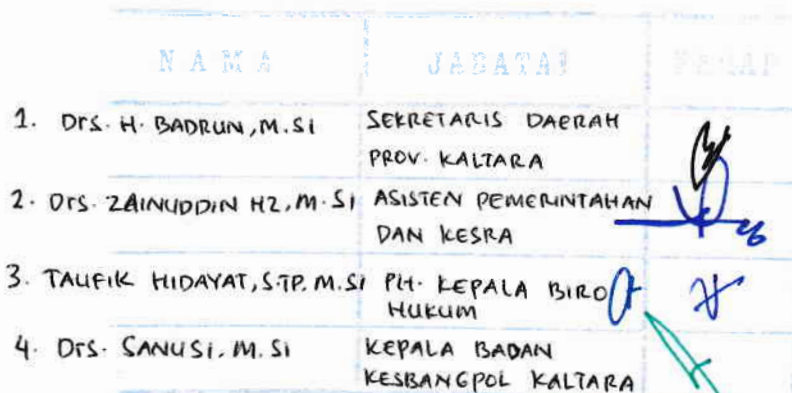 NAMA JABATAN PARAP
1. Drs. H. BADRUN, M.Si SEKRETARIS DAERAH
PROV. KALTARA
2. Drs. ZAINUDDIN HZ, M.Si ASISTEN PEMERINTAHAN
DAN KESRA
3. TAUFIK HIDAYAT, S.TP. M.Si PLH. KEPALA BIRO
HUKUM
4. Drs. SANUSI. M. Si KEPALA BADAN
KESBANGPOL KALTARA